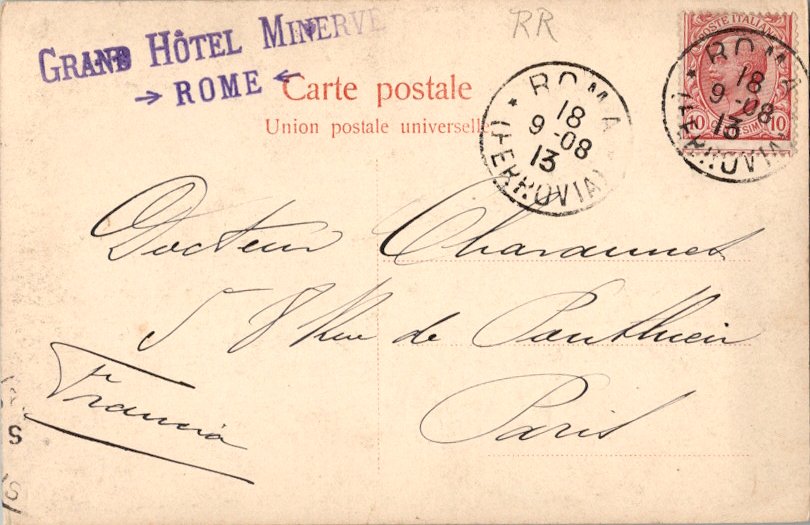 GRAND HÔTEL MINERVE
→ ROME ←
RR
Carte postale
Union postale universelle
POSTE ITALIANE
10 10
ROMA
18
9-08
13
(FERROVIA)
ROMA
18
9-08
13
(FERROVIA)
Docteur Charaunet
58 Rue de Ponthieu
Paris
Francia
S
S